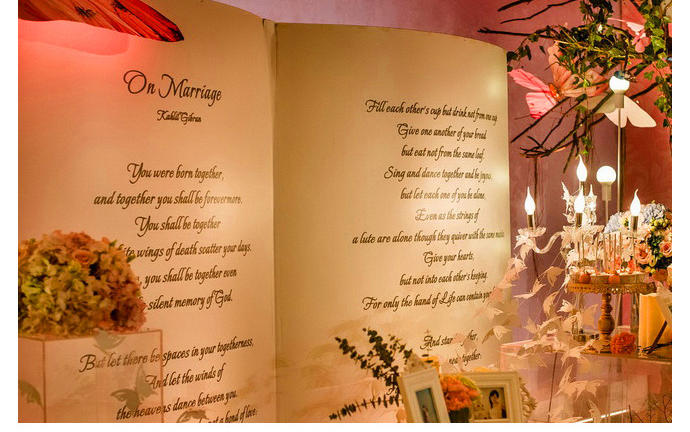 On Marriage
Kahlil Gibran
You were born together,
and together you shall be forevermore.
You shall be together
wings of death scatter your days.
you shall be together even
silent memory of God.
But let there be spaces in your togetherness,
And let the winds of
the heavens dance between you.
not a bond of love:
Fill each other's cup but drink not from one cup.
Give one another of your bread
but eat not from the same loaf.
Sing and dance together and be joyous,
but let each one of you be alone,
Even as the strings of
a lute are alone though they quiver with the same music.
Give your hearts,
but not into each other's keeping.
For only the hand of Life can contain your
And
together: